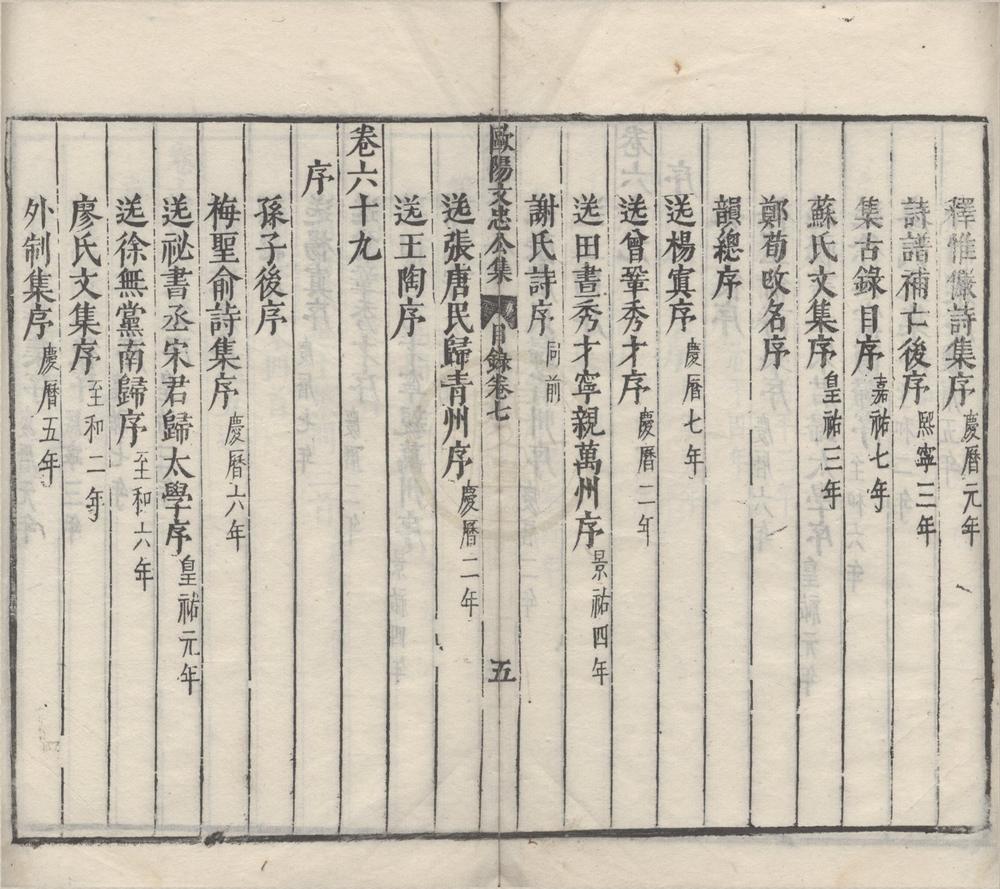 釋惟儼詩集序慶曆元年
詩譜補亡後序熙寧三年
集古錄目序嘉祐七年
蘇氏文集序皇祐三年
鄭荀改名序
韻總序
送楊寘序慶曆七年
送曾鞏秀才序慶曆二年
送田畫秀才寧親萬州序景祐四年
謝氏詩序同前
歐陽文忠公集 目錄卷七 五
送張唐民歸青州序慶曆二年
送王陶序
卷六十九
序
孫子後序
梅聖俞詩集序慶曆六年
送祕書丞宋君歸太學序皇祐元年
送徐無黨南歸序至和六年
廖氏文集序至和二年
外制集序慶曆五年